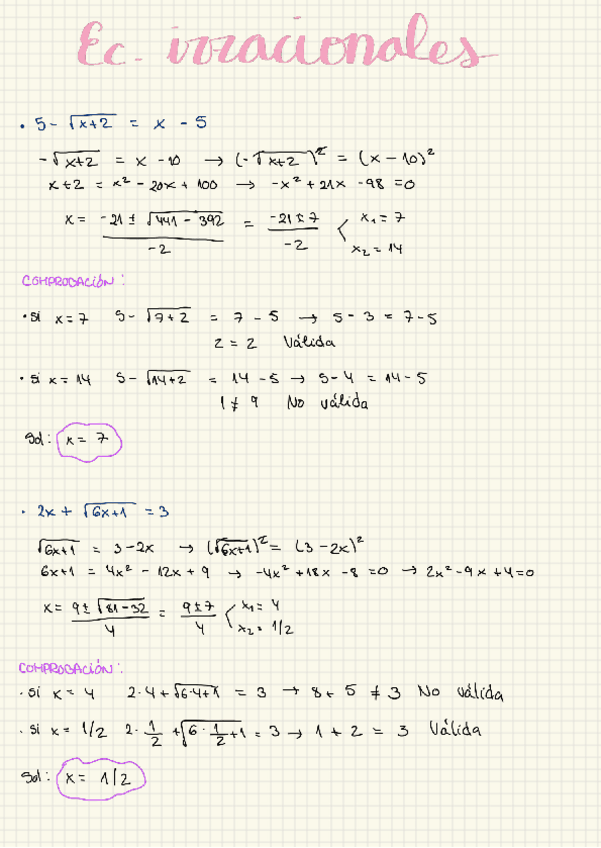 Ec. irracionales
• 5 - √(x+2) = x - 5
-√(x+2) = x - 10 → (-√(x+2))² = (x - 10)²
x + 2 = x² - 20x + 100 → -x² + 21x - 98 = 0
x = (-21 ± √(441 - 392))/-2 = (-21 ± 7)/-2 < x₁ = 7
x₂ = 14
COMPROBACIÓN:
• Si x = 7 5 - √(7+2) = 7 - 5 → 5 - 3 = 7 - 5
2 = 2 Válida
• Si x = 14 5 - √(14+2) = 14 - 5 → 5 - 4 = 14 - 5
1 ≠ 9 No válida
Sol: x = 7
• 2x + √(6x+1) = 3
√(6x+1) = 3 - 2x → (√(6x+1))² = (3 - 2x)²
6x+1 = 4x² - 12x + 9 → -4x² + 18x - 8 = 0 → 2x² - 9x + 4 = 0
x = (9 ± √(81 - 32))/4 = (9 ± 7)/4 < x₁ = 4
x₂ = 1/2
COMPROBACIÓN:
• Si x = 4 2·4 + √(6·4+1) = 3 → 8 + 5 ≠ 3 No válida
• Si x = 1/2 2·1/2 + √(6·1/2+1) = 3 → 1 + 2 = 3 Válida
Sol: x = 1/2